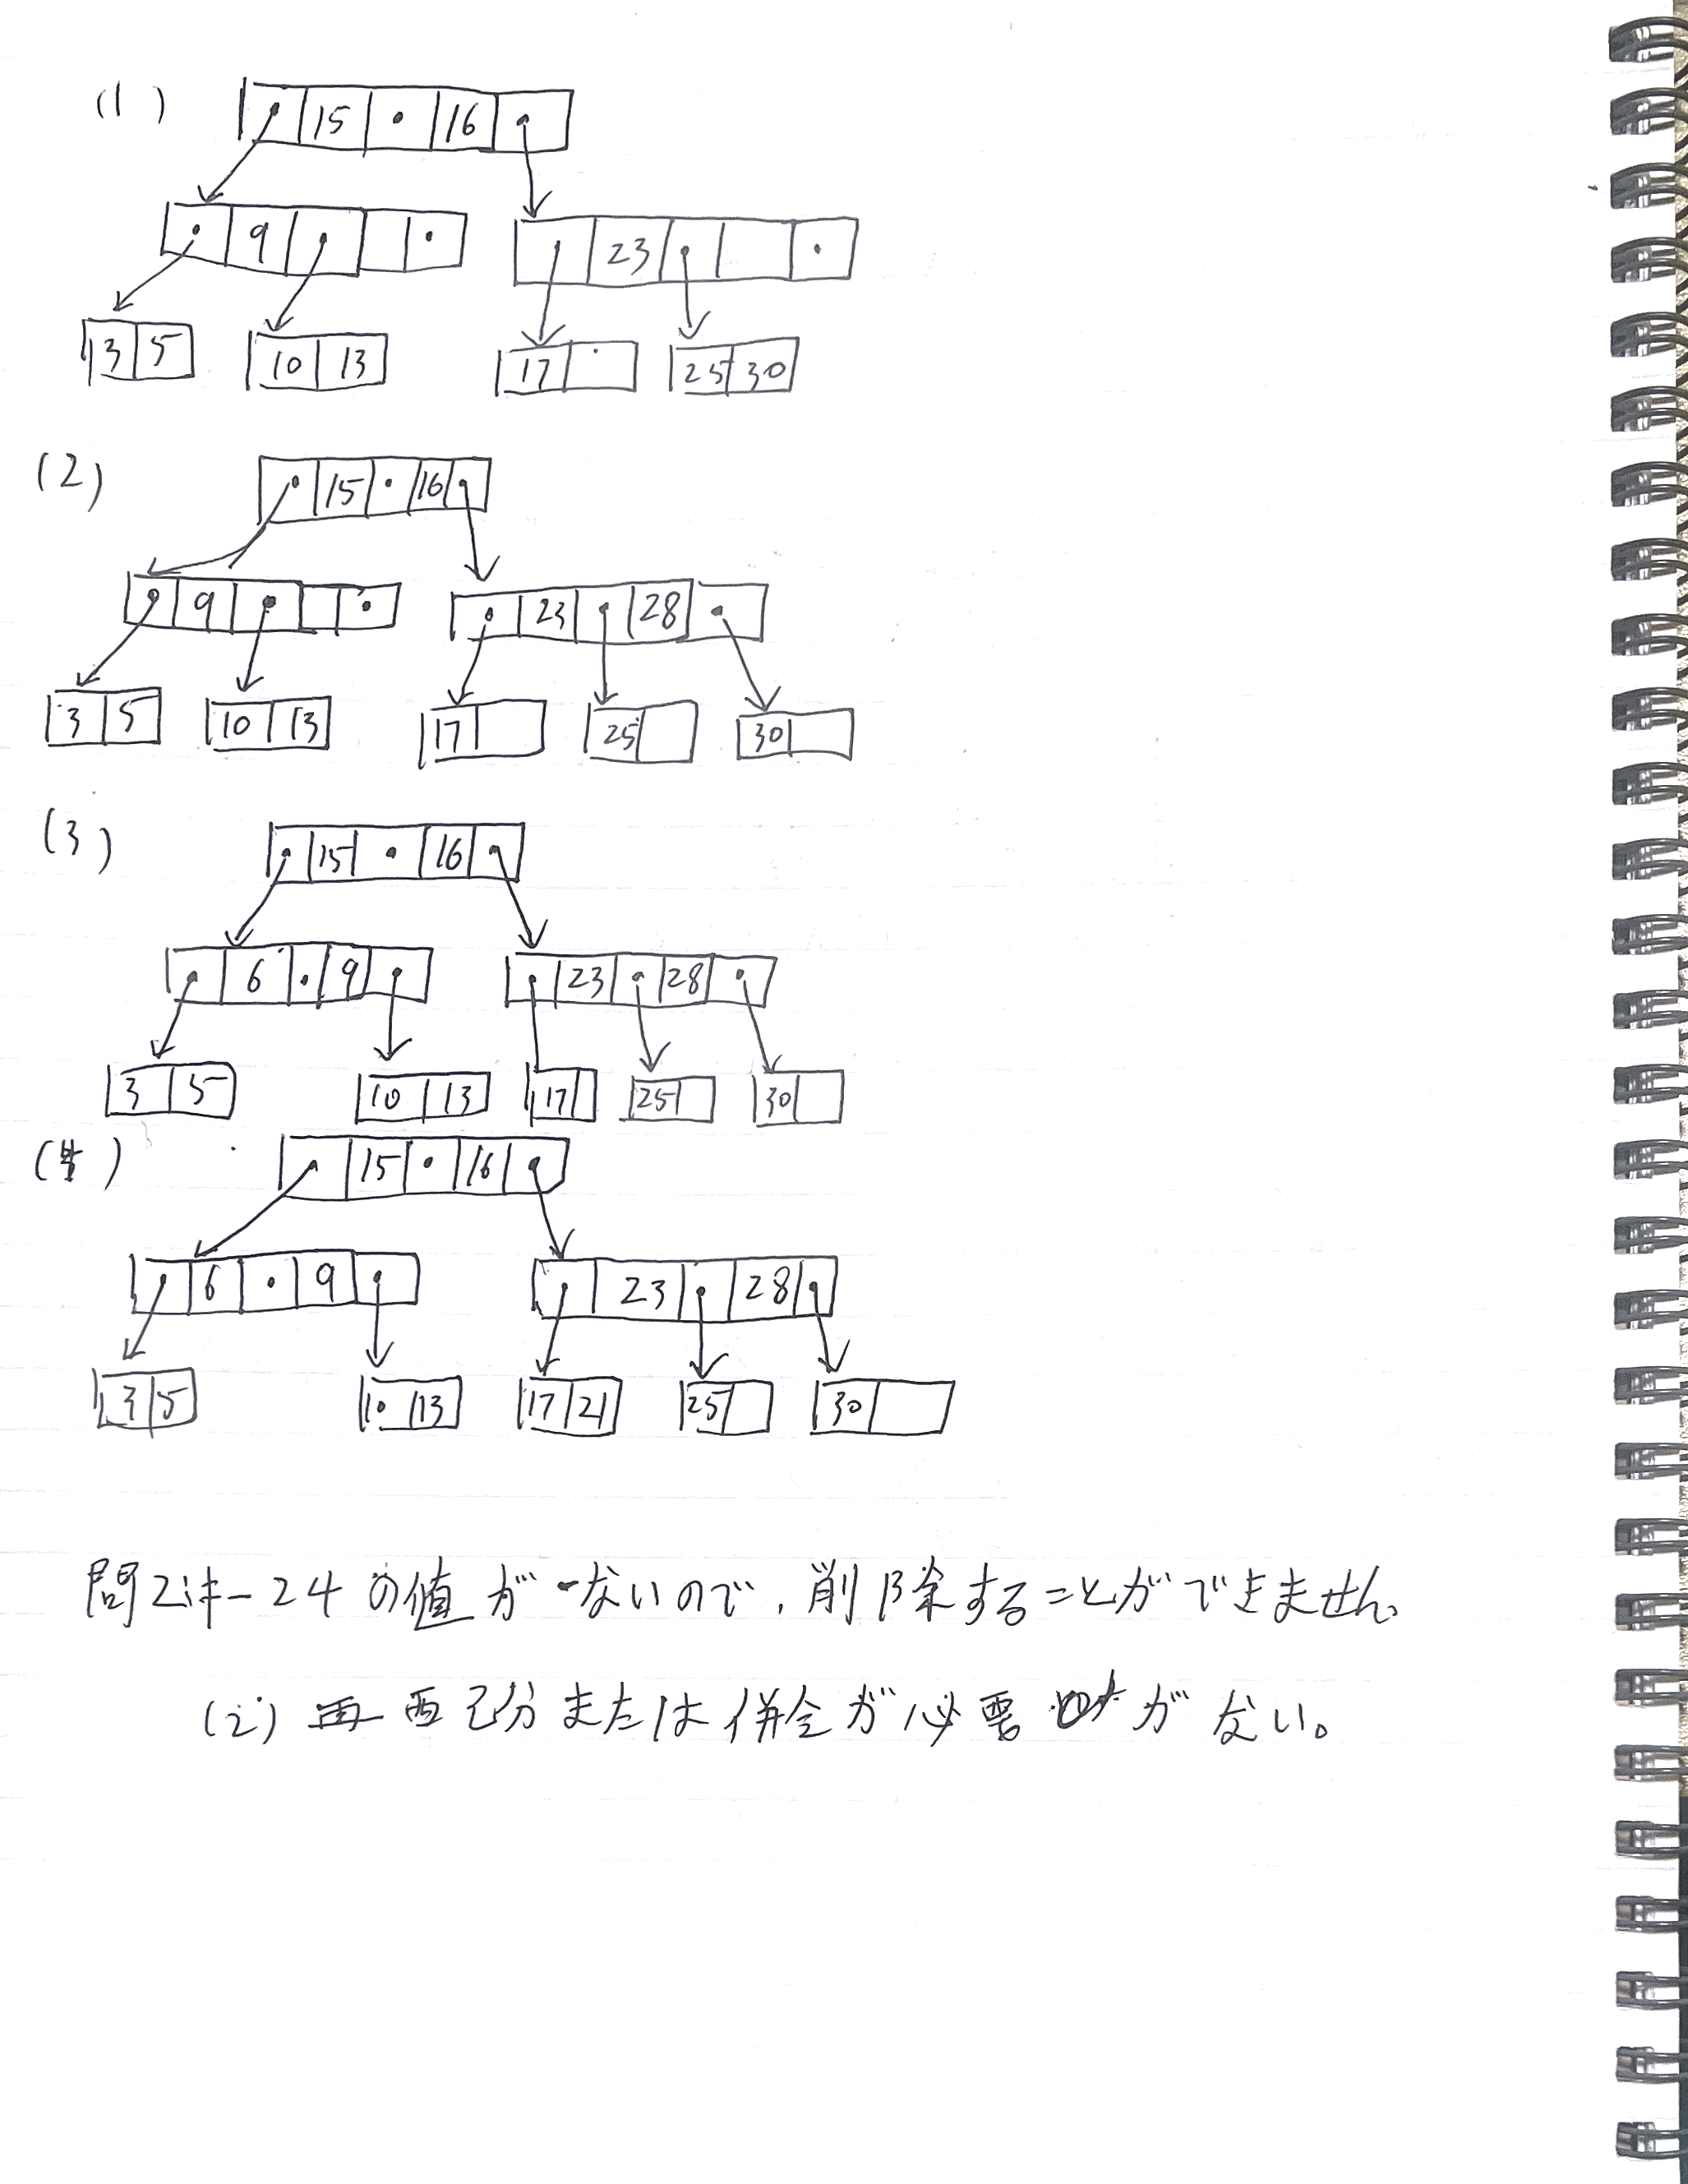 (1)
15 16
9
23
3 5
10 13
17
25 30
(2)
15 16
9
23 28
3 5
10 13
17
25
30
(3)
15 16
6 9
23 28
3 5
10 13
17
25
30
(4)
15 16
6 9
23 28
3 5
10 13
17 21
25
30
問2はキー24の値がないので、削除することができません。
(2) 再配分または併合が必要がない。